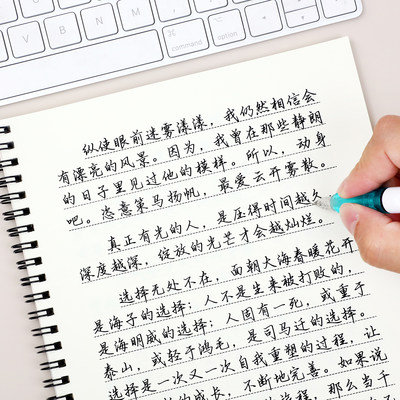 control
option
command
纵使眼前迷雾漾漾，我仍然相信会
有漂亮的风景。因为，我曾在那些静朗
的日子里见过他的模样。所以，动身
吧。恣意策马扬帆，最爱云开雾散。
真正有光的人，是压得时间越久
深度越深，绽放的光芒才会越灿烂。
选择无处不在，面朝大海春暖花开
是海子的选择；人不是生来被打败的，
是海明威的选择；人固有一死，或重于
泰山，或轻于鸿毛，是司马迁的选择。
选择是一次又一次自我重塑的过程，让
的成长，不断地完善。如果说